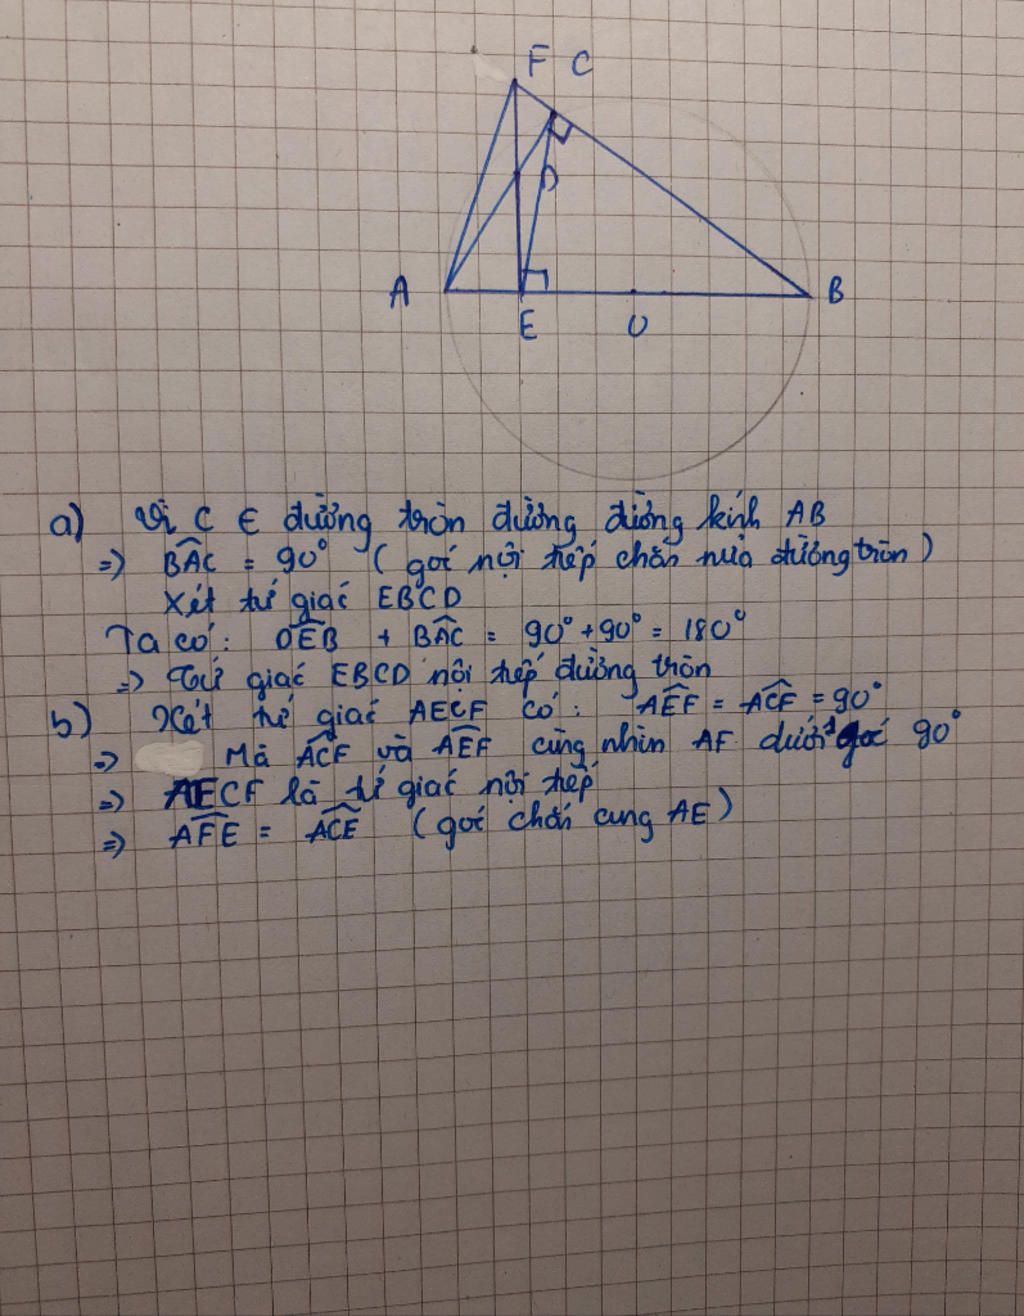 F C
D
A
B
E
O
a) Vì C ∈ đường tròn đường đường kính AB
=> BÂC = 90° (góc nội tiếp chắn nửa đường tròn)
Xét tứ giác EBCD
Ta có: DÊB + BÂC = 90° + 90° = 180°
=> Tứ giác EBCD nội tiếp đường tròn
b) Xét tứ giác AECF có: AÊF = AĈF = 90°
=> Mà AĈF và AÊF cùng nhìn AF dưới 1 góc 90°
=> AECF là tứ giác nội tiếp
=> AF̂E = AĈE (góc chắn cung AE)